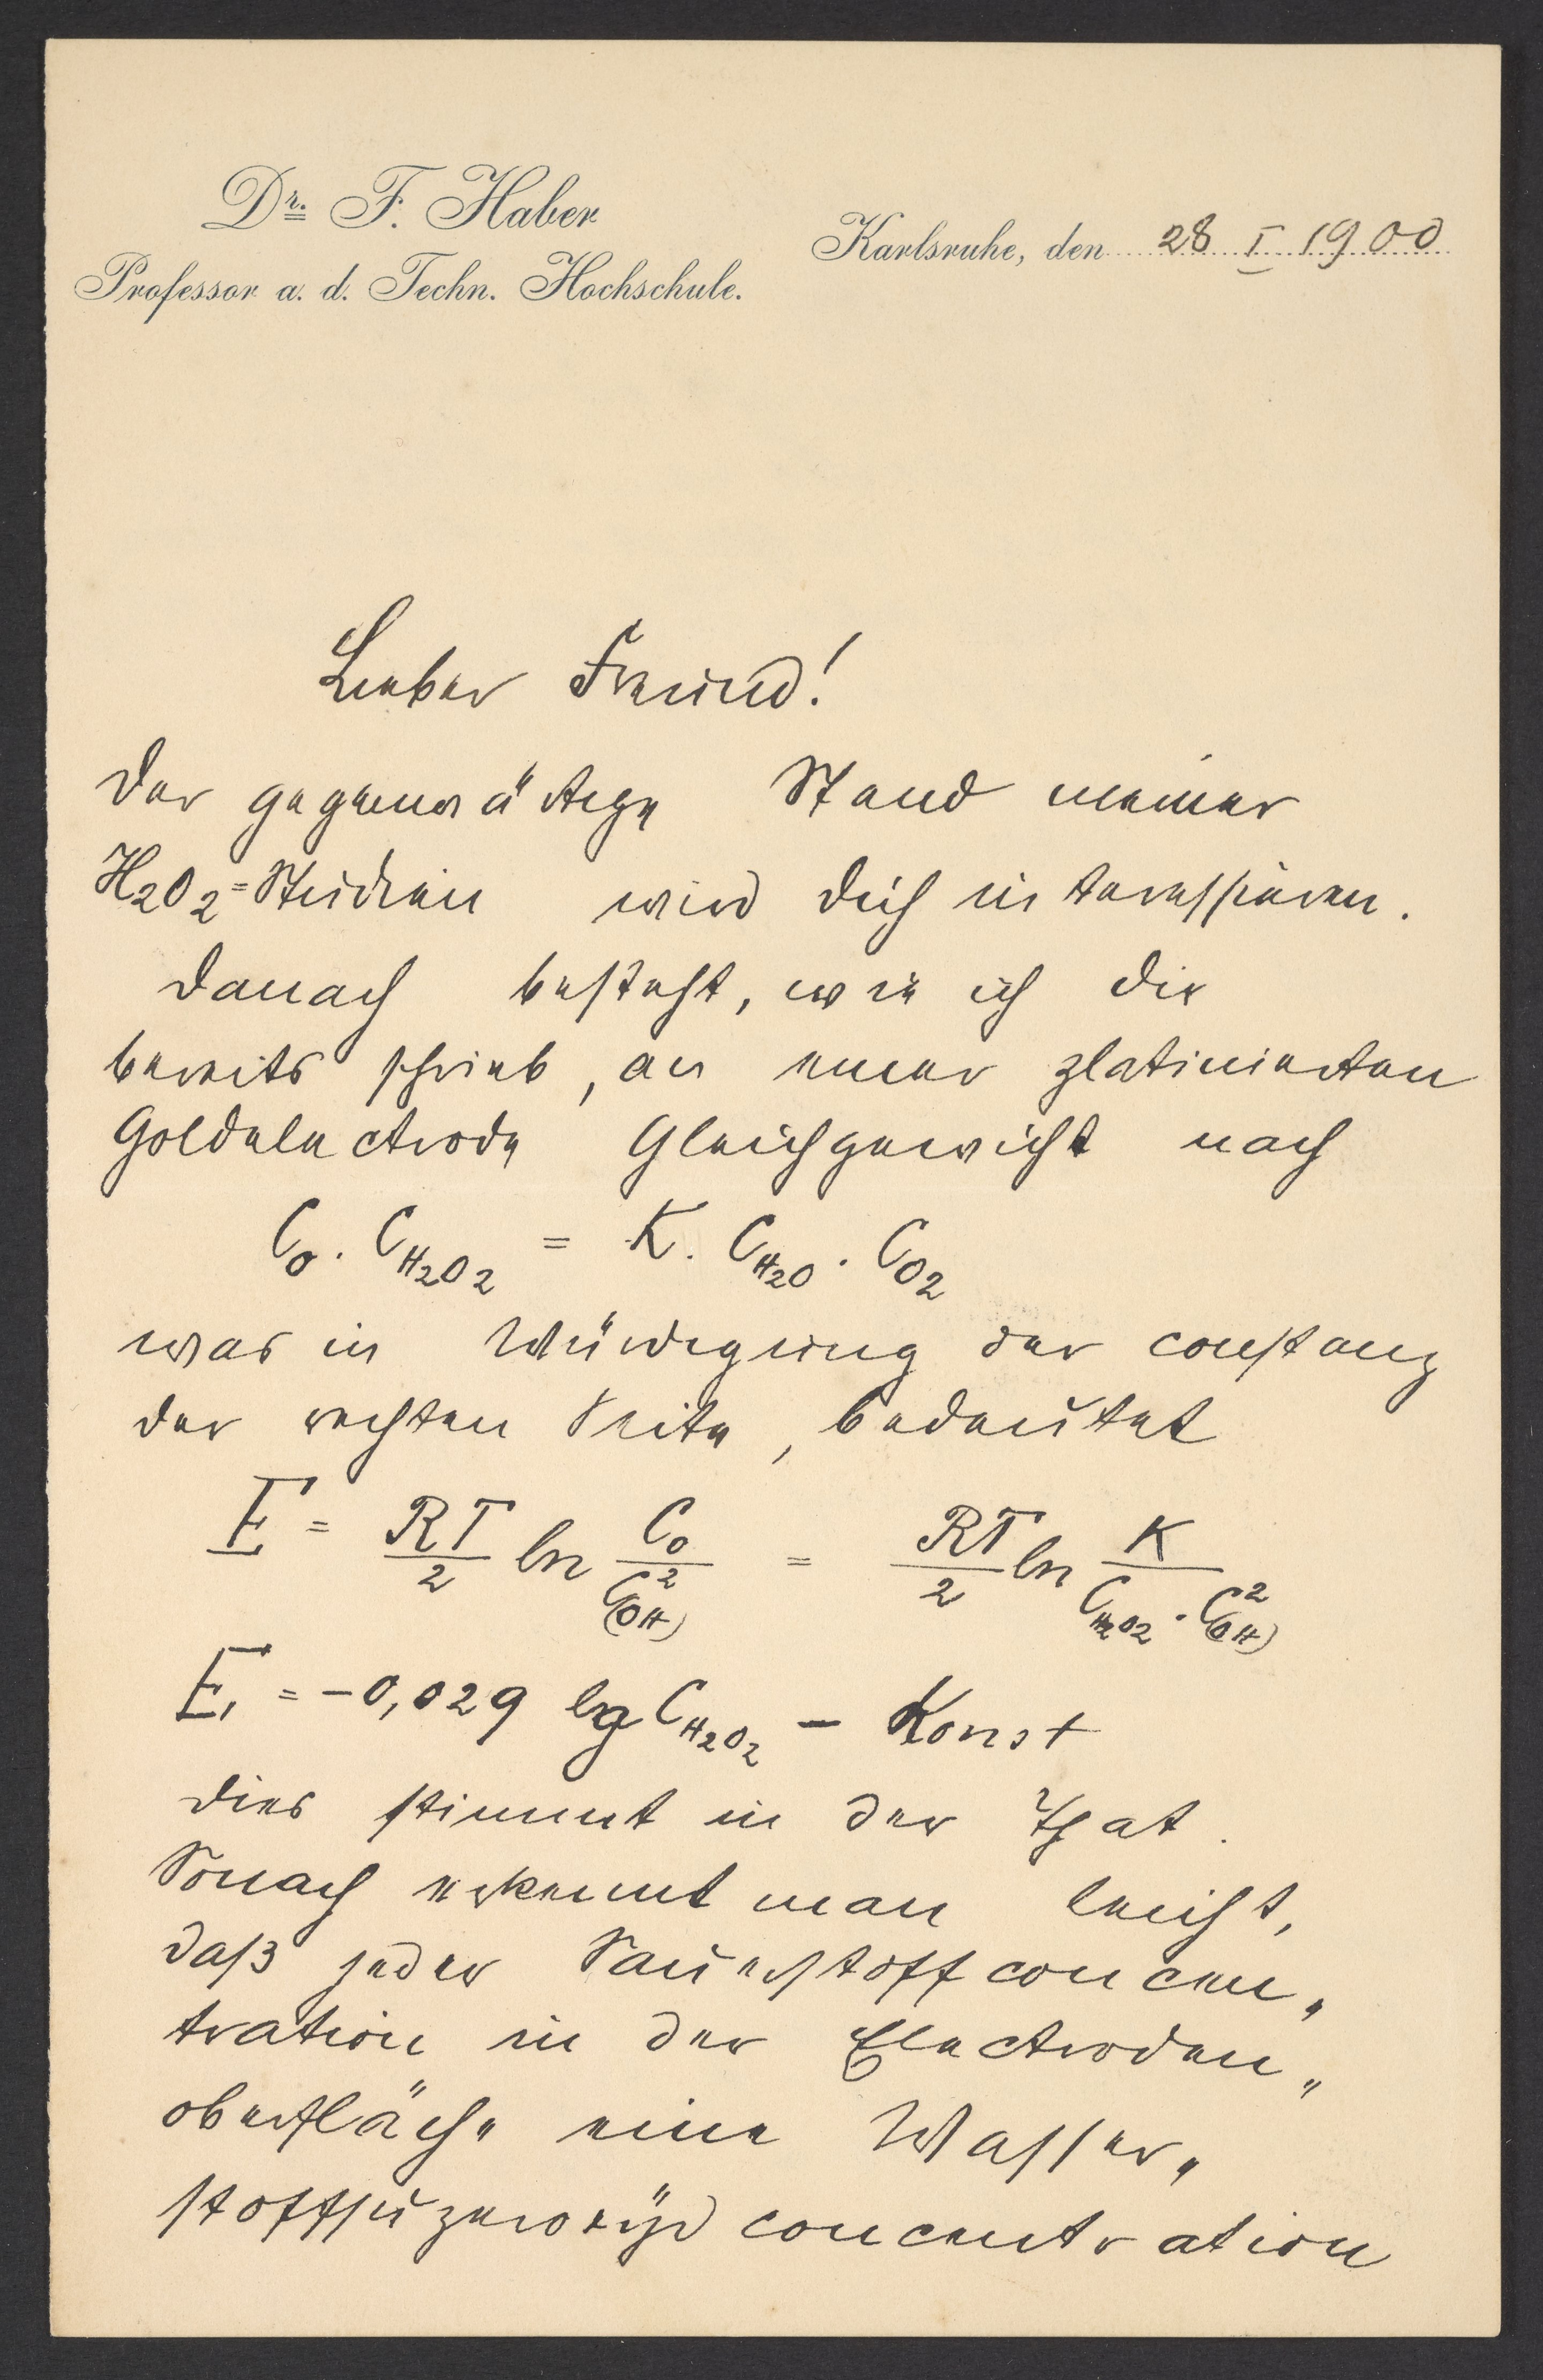 Dr. F. Haber
Professor a. d. Techn. Hochschule.
Karlsruhe, den 28 I 1900
Lieber Freund!
Der gegenwärtige Stand meiner
H2O2=Studien wird Dich interessieren.
Danach besteht, wie ich Dir
bereits schrieb, an einer platinierten
Goldelectrode Gleichgewicht nach
C_O . C_H2O2 = K. C_H2O . C_O2
was in Würdigung der Constanz
der rechten Seite, bedeutet
E = RT/2 ln C_O/C²_(OH) = RT/2 ln K/C_H2O2 . C²_(OH)
E, = -0,029 lg C_H2O2 - Konst
Dies stimmt in der That.
Sonach erkennt man leicht,
daß jeder Sauerstoffconcen„
tration in der Electroden„
oberfläche eine Wasser„
stoffsuperoxÿd concentration